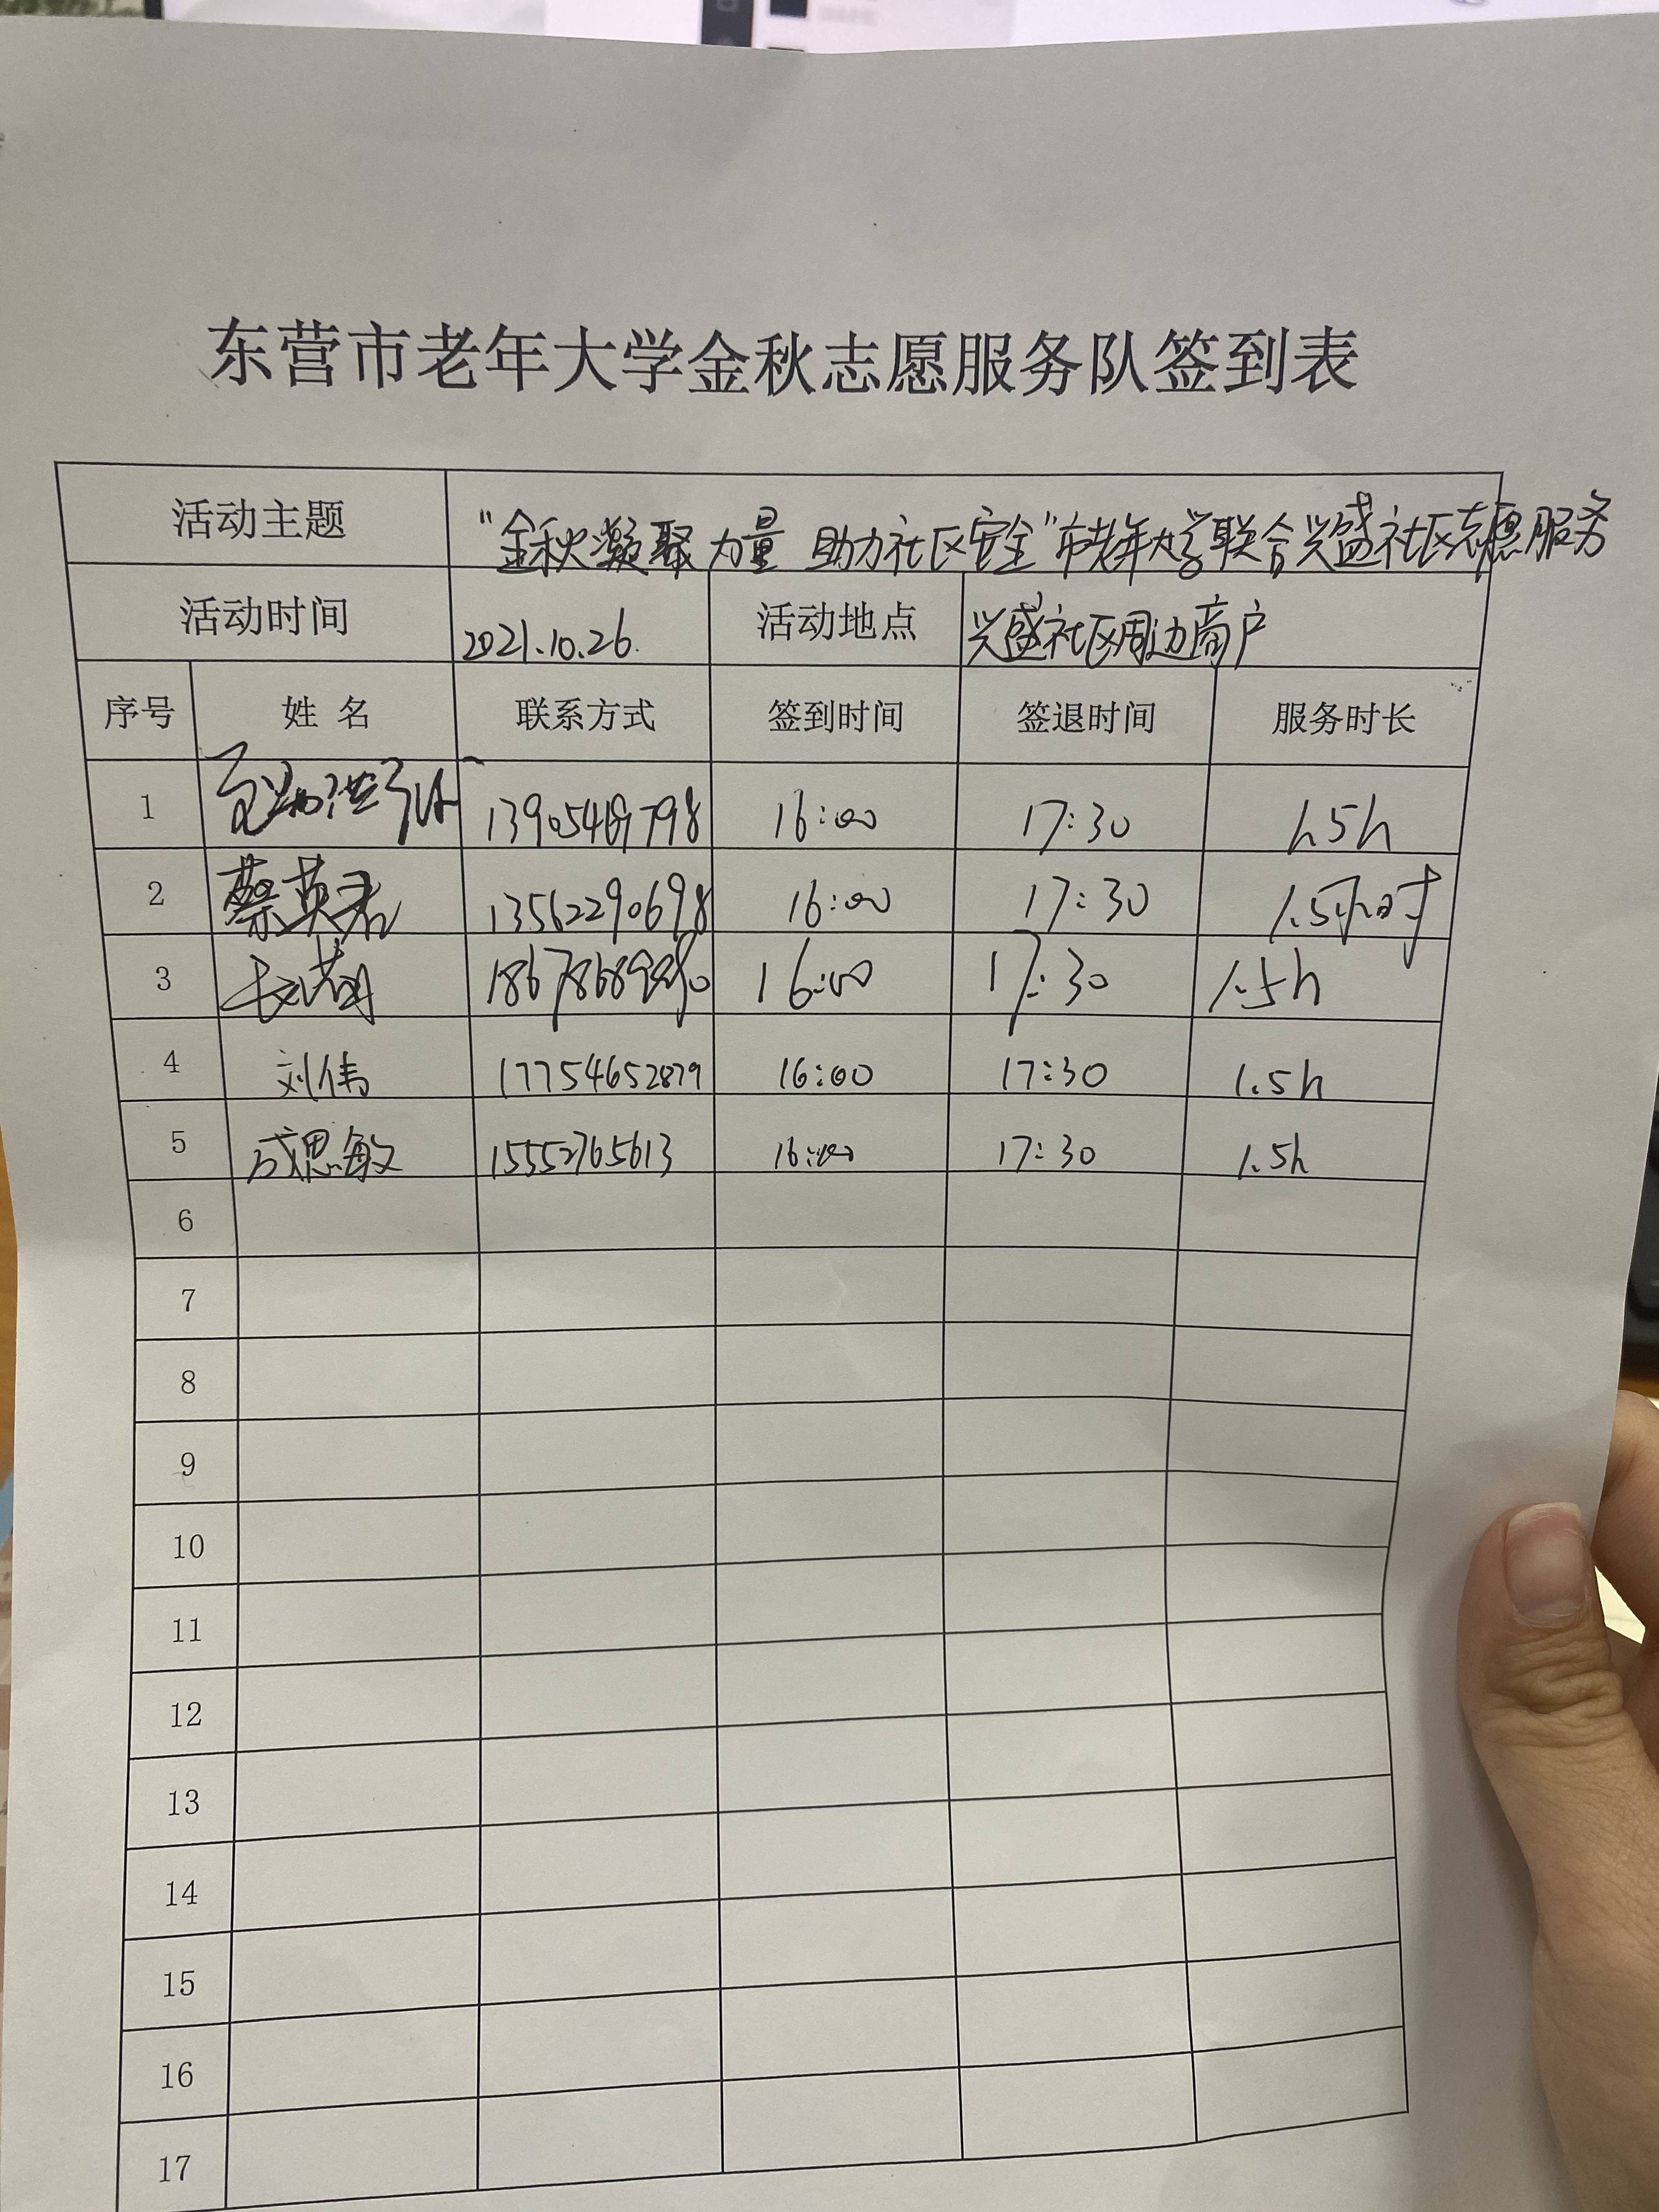 东营市老年大学金秋志愿服务队签到表
活动主题 "金秋凝聚力量 助力社区安全"市老年大学联合兴盛社区志愿服务
活动时间 2021.10.26. 活动地点 兴盛社区周边商户
序号 姓 名 联系方式 签到时间 签退时间 服务时长
1 16:00 17:30 1.5h
2 蔡英君 13562290698 16:00 17:30 1.5小时
3 16:00 17:30 1.5h
4 刘伟 17754652879 16:00 17:30 1.5h
5 成思敏 15552765613 16:00 17:30 1.5h
6
7
8
9
10
11
12
13
14
15
16
17